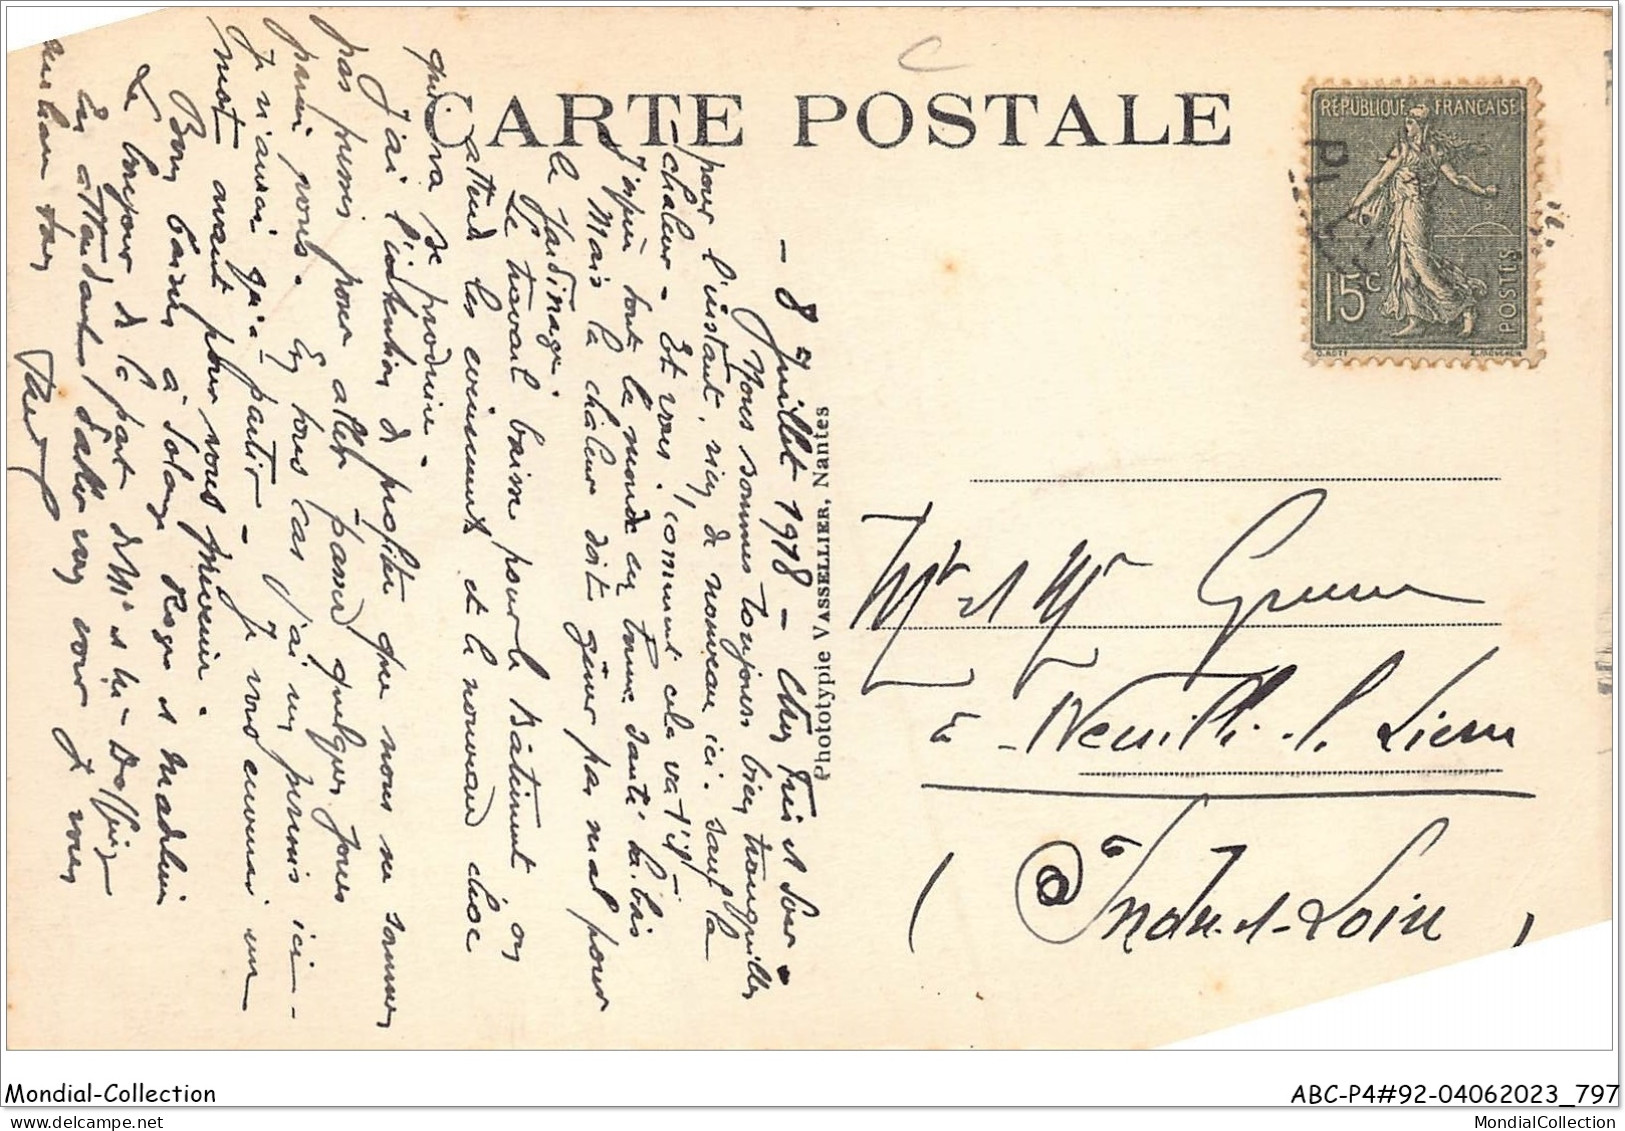 CARTE POSTALE
RÉPUBLIQUE FRANÇAISE
15c
POSTES
Phototypie VASSELLIER, Nantes
- 8 Juillet 1918 - Cher Frère et Soeur
Nous sommes toujours bien tranquilles
pour l'instant, rien de nouveau ici. sauf la
chaleur - Et vous, comment cela va t'il ?
J'espère tout le monde en bonne santé
Mais la chaleur doit gêner pas mal pour
le Jardinage.
Le travail baisse pour le Bâtiment on
attend les événements et de nouveau chose
qui va se produire -
J'ai l'intention de profiter que nous ne sommes
pas pressés pour aller passer quelques jours
parmi vous. En tous cas j'ai un permis ici -
Je n'aurai qu'à partir - Je vous enverrai un
mot avant pour vous prévenir.
Bons baisers à Solange Roger et Madeleine
Le bonjour de la part de Mr et Me
En attendant d'aller vous voir je vous
embrasse tous
Mr et Me
à Neuillé-l. Lierre
(Indre-et-Loire)
Mondial-Collection
ABC-P4#92-04062023_797
MondialCollection
MondialCollection